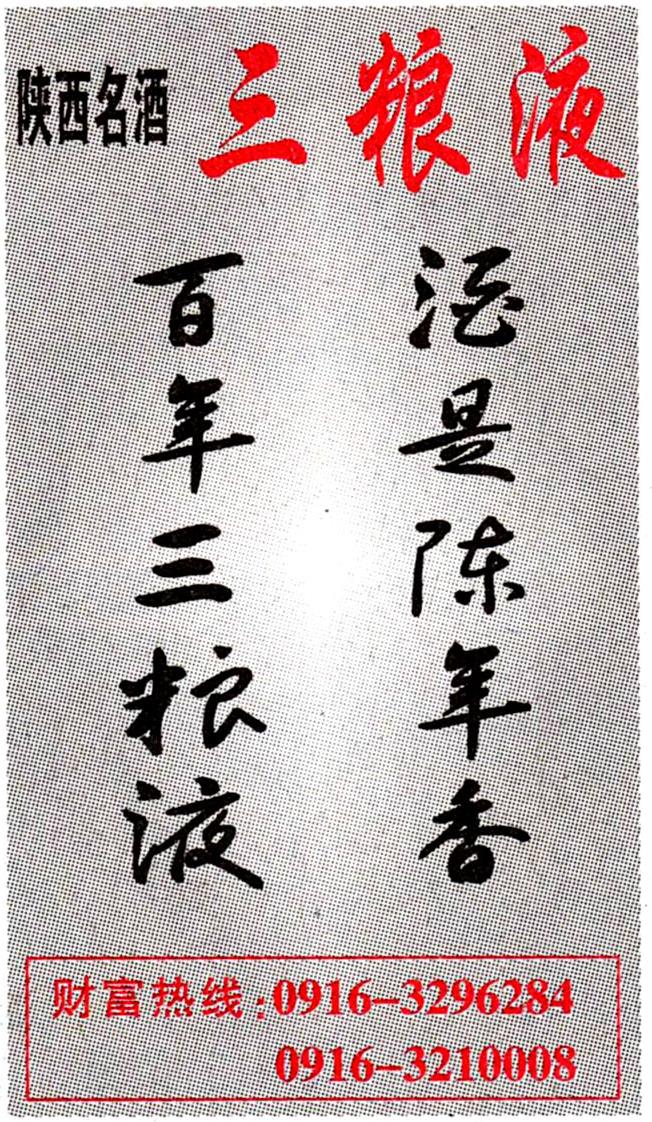 陕西名酒 三粮液
酒是陈年香
百年三粮液
财富热线:0916-3296284
0916-3210008